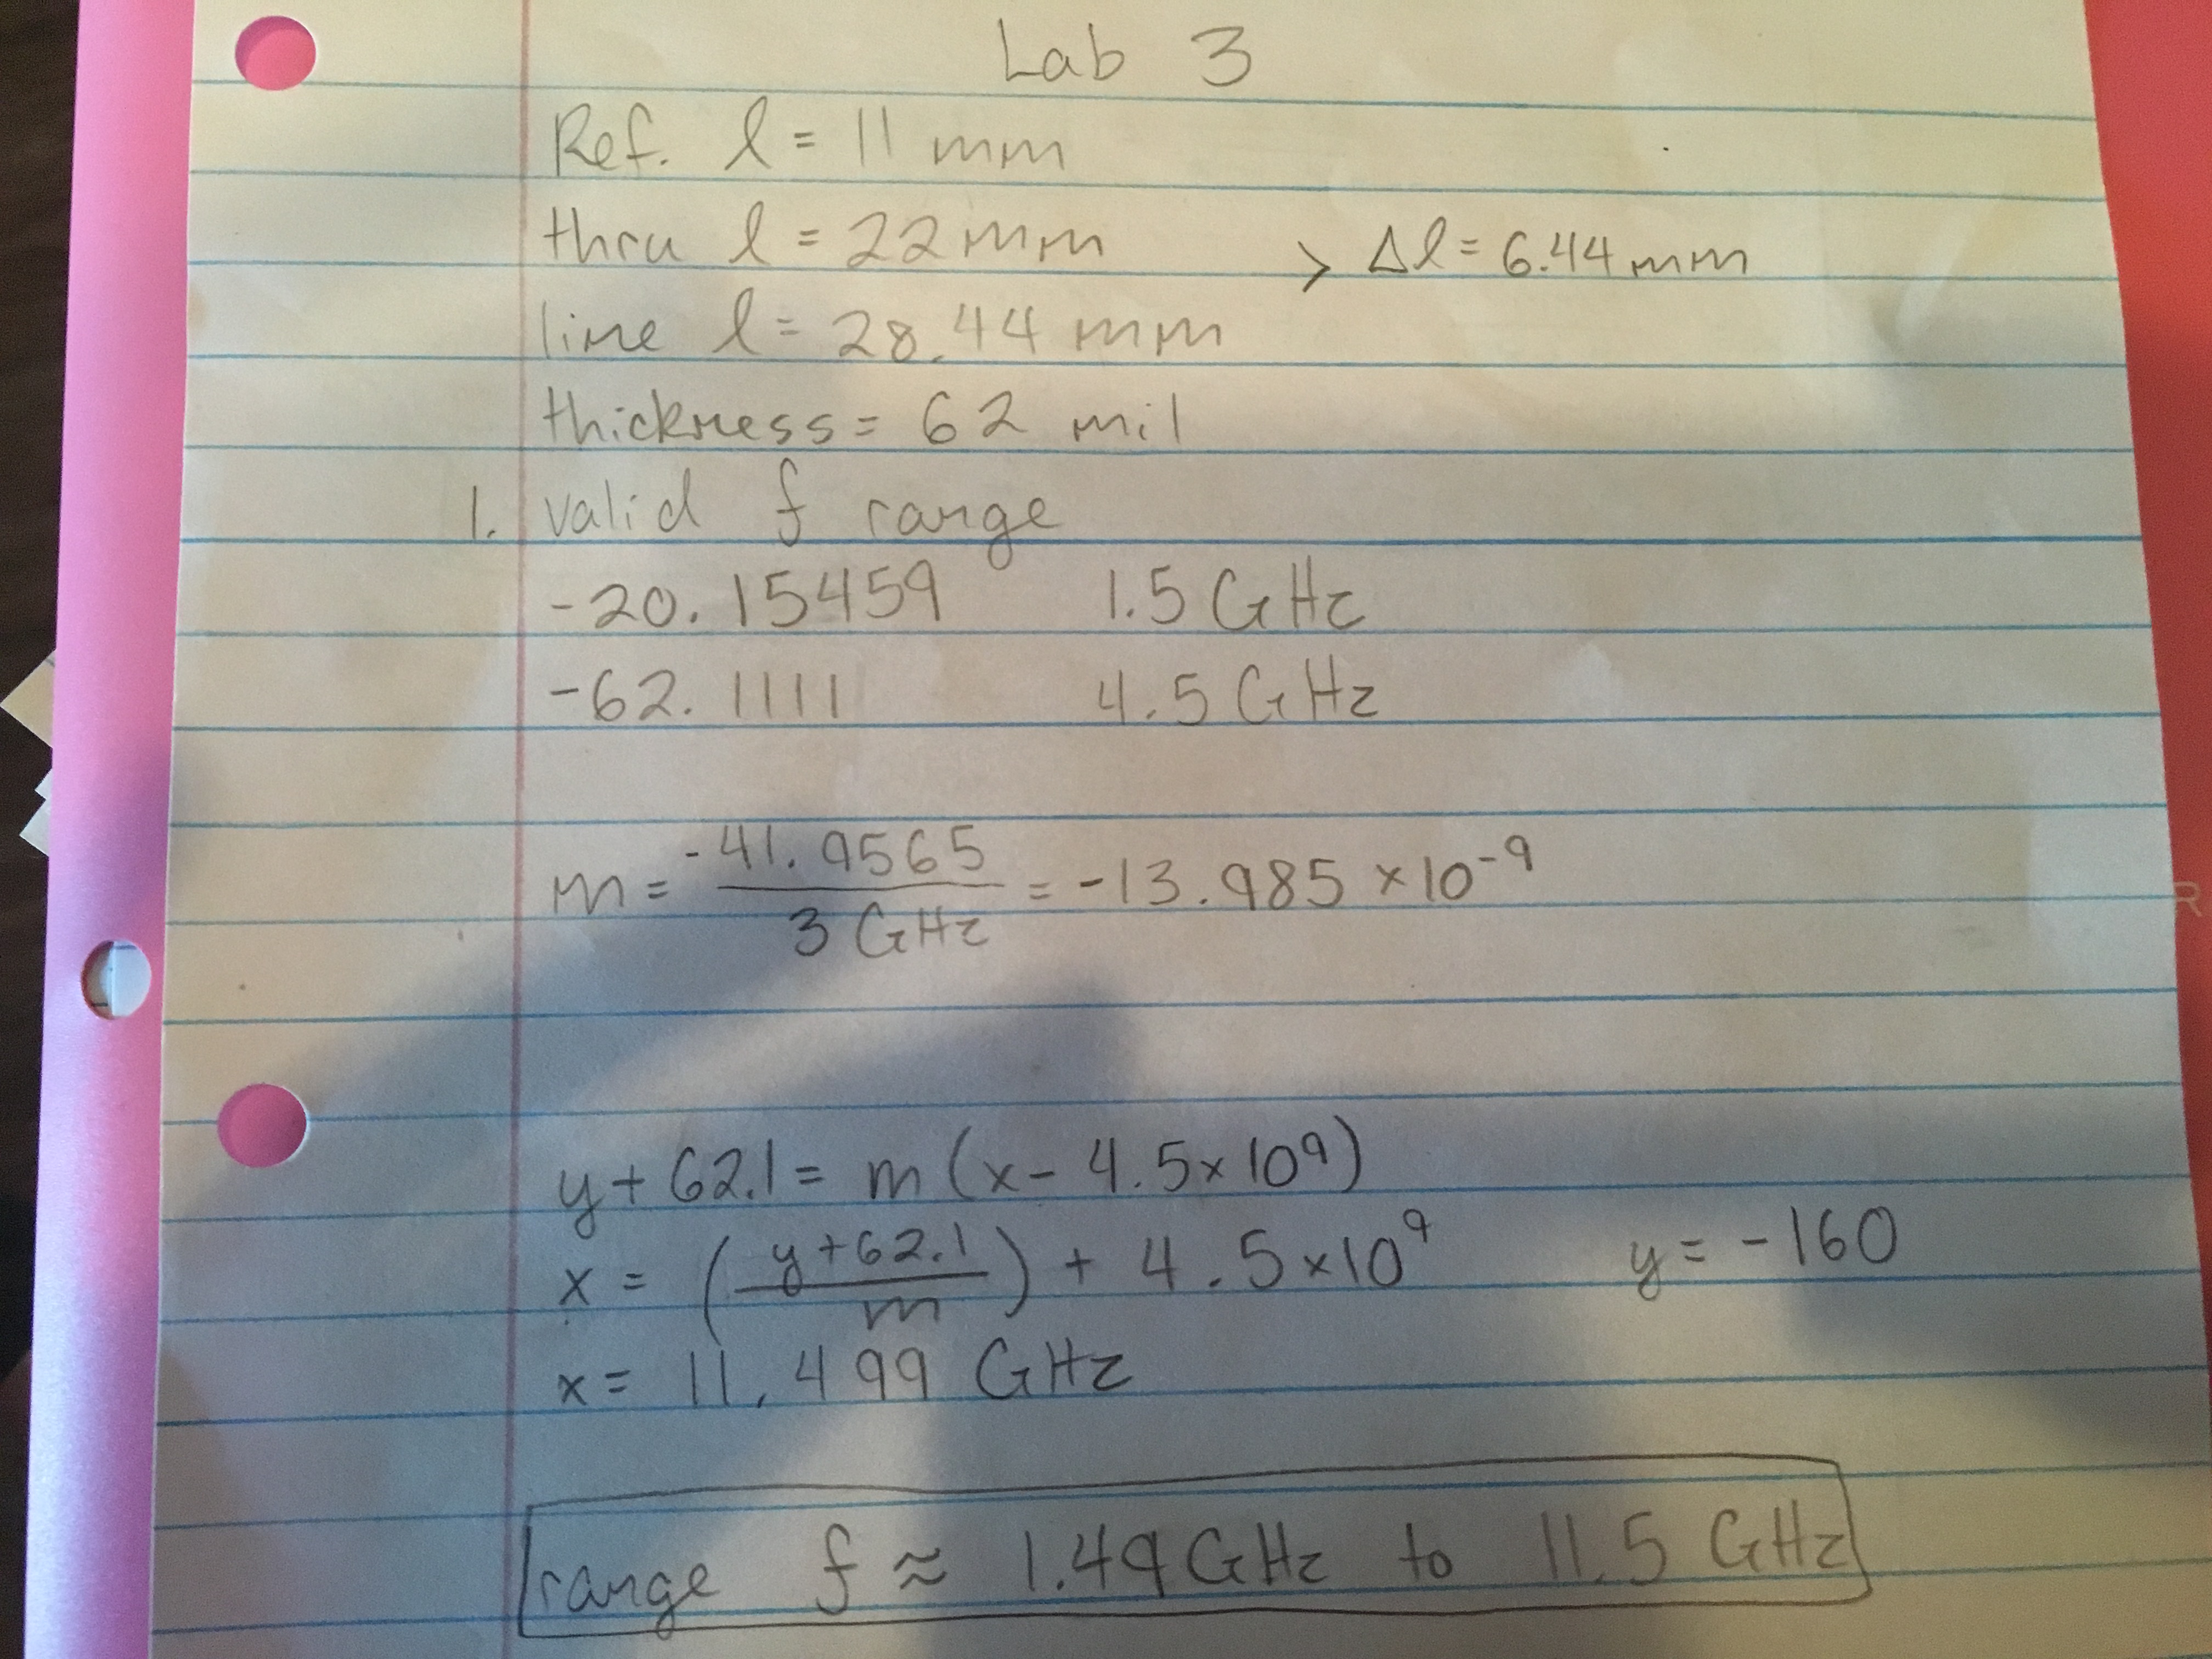 Lab 3
Ref. l = 11 mm
thru l = 22 mm > Δl = 6.44 mm
line l = 28.44 mm
thickness = 62 mil
1. valid f range
-20.15459 1.5 GHz
-62.1111 4.5 GHz
m = -41.9565 / 3 GHz = -13.985 × 10⁻⁹
y + 62.1 = m (x - 4.5 × 10⁹)
x = ( y + 62.1 / m ) + 4.5 × 10⁹ y = -160
x = 11.499 GHz
range f ≈ 1.49 GHz to 11.5 GHz
R